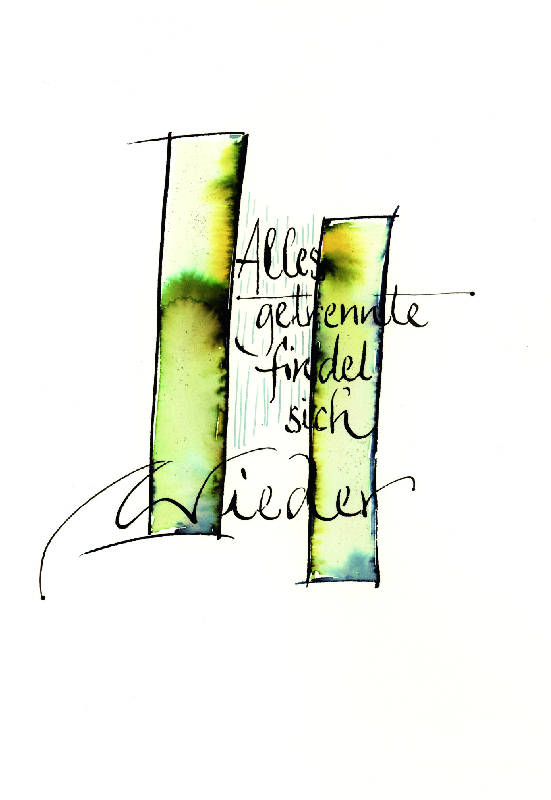 Alles
getrennte
findet
sich
Wieder